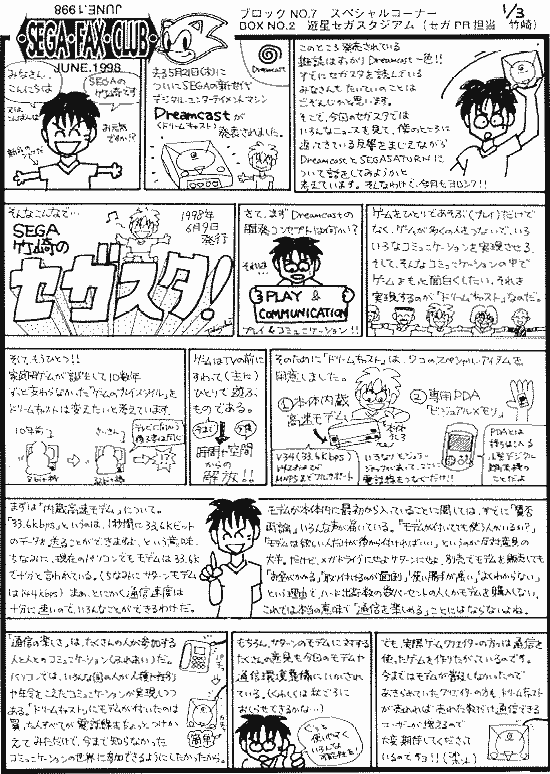 JUNE.1998
ブロックNO.7 スペシャルコーナー
BOX NO.2 遊星セガスタジアム (セガPR担当 竹崎)
1/3
・SEGA・FAX・CLUB・
JUNE.1998
みなさん、
こんにちは
SEGAの
竹崎です
お元気
ですか!?
去る5月21日(木)に
ついにSEGAの新世代
デジタル・エンターテイメントマシン
Dreamcastが
(ドリームキャスト)
発表されました。
Dreamcast
このところ発売されている
雑誌はすっかりDreamcast一色!!
すでにセガスタを読んでいる
みなさんもだいたいのことは
ごぞんじかと思います。
そこで、今回のセガスタでは
いろんなニュースを見て、僕のところに
返ってきている反響をまじえながら
DreamcastとSEGASATURNに
ついて話をしてみようかと
考えています。そんなわけで、今月もヨロシク!!
そんなこんなで…
SEGA
竹崎の
セガスタ!
1998年
6月9日
発行
さて、まずDreamcastの
開発コンセプトは何か?
それは…
PLAY &
COMMUNICATION
プレイ&コミュニケーション!!
ゲームをひとりであそぶ(プレイ)だけで
なく、ゲームが多くの人をつないで、いろ
いろなコミュニケーションを実現させる。
そして、そんなコミュニケーションの中で
ゲームをもっと面白くしたい。それを
実現するのが「ドリームキャスト」なのだ。
そして、もうひとつ!!
家庭用ゲームが誕生して10数年
ずっと変わらなかった「ゲームのプレイスタイル」を
ドリームキャストは変えたいと考えています。
10年前
ゲームはTVの前に
すわって(主に)
ひとりで遊ぶ
ものである。
時間と空間
からの
解放!!
そのために「ドリームキャスト」は、2つのスペシャル・アイテムを
用意しました。
①本体内蔵
高速モデム
②専用PDA
「ビジュアルメモリ」
V34(33.6Kbps)
MNP5までフルサポート
PDAとは
持ちはこべる
小型デジタル
携帯機の
ことだよ
まずは「内蔵高速モデム」について。
「33.6Kbps」というのは、1秒間に33.6Kビット
のデータを送ることができますよ、という意味。
ちなみに、現在のパソコンでもモデムは33.6K
で十分と言われている。(ちなみにサターンモデム
は14.4Kbps)まあ、とにかく通信速度は
十分に速いので、いろんなことができるわけだ。
モデムが本体内に最初から入っていることに関しては、すでに「賛否
両論」いろんな声が届いている。「モデムが付いてても使う人がいるか?」
「モデムは欲しい人だけが後から付ければいい」というのが反対意見の
大半。だけど、メガドライブにせよサターンにせよ、別売でモデムを販売しても
「お金がかかる」「取り付けるのが面倒」「使い勝手が悪い」「よくわからない」
という理由で、ハード出荷数の数パーセントの人しかモデムを購入しない。
これでは本当の意味で「通信を楽しめる」ことにはならないよね。
「通信の楽しさ」は、たくさんの人が参加する
人と人とのコミュニケーション(ふれあい)だ。
パソコンでは、いろんな国の人が人種や性別
や年令をこえたコミュニケーションが実現しつつ
ある。「ドリームキャスト」にモデムが付いたのは
買った人すべてが電話線をちょっとつけかえ
てみただけで、今まで知らなかった
コミュニケーションの世界に参加できるようにしたかったから。
簡単
もちろん、サターンのモデムに対する
たくさんの意見も今回のモデムや
通信環境整備にいかされて
いる。(くわしくは秋ごろに
おしらせできるかな…)
でも、実際ゲームクリエイターの方々は通信を
使ったゲームを作りたがっているのです。
今まではモデムが普及しなかったので
あきらめていたクリエイターの方も、ドリームキャスト
が売れれば「売れた数だけ」通信できる
ユーザーが増えるので
大変期待してくださって
いるのですヨ!!